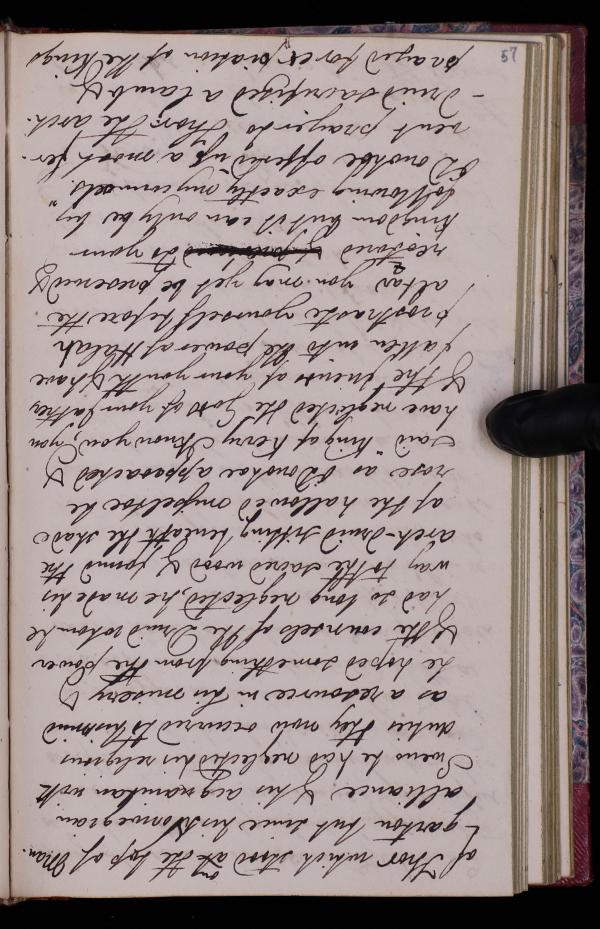 of Thor which stood on the top of Man-
garton but since his Norwegian
alliance & his acquaintance with
Sweno he had neglected his religious
duties they now occurred to his mind
as a resource in his misery &
he hoped something from the power
& the counsels of the Druid whom he
had so long neglected, he made his
way to the sacred wood & found the
arch-druid sitting beneath the shade
of the hallowed misseltoe he
rose as O'Donohue approached &
said "King of Kerry I know you, you
have neglected the Gods of your father
& the friends of your youth & have
fallen into the power of Hela
prostrate yourself before the
altar you may yet be preserved &
restored to your
kingdom but it can only be by
following exactly my counsels."
O'Donohue offered up a most fer-
vent prayer to Thor: the arch-
-druid sacrificed a lamb &
prayed for expiation of the Kings
57